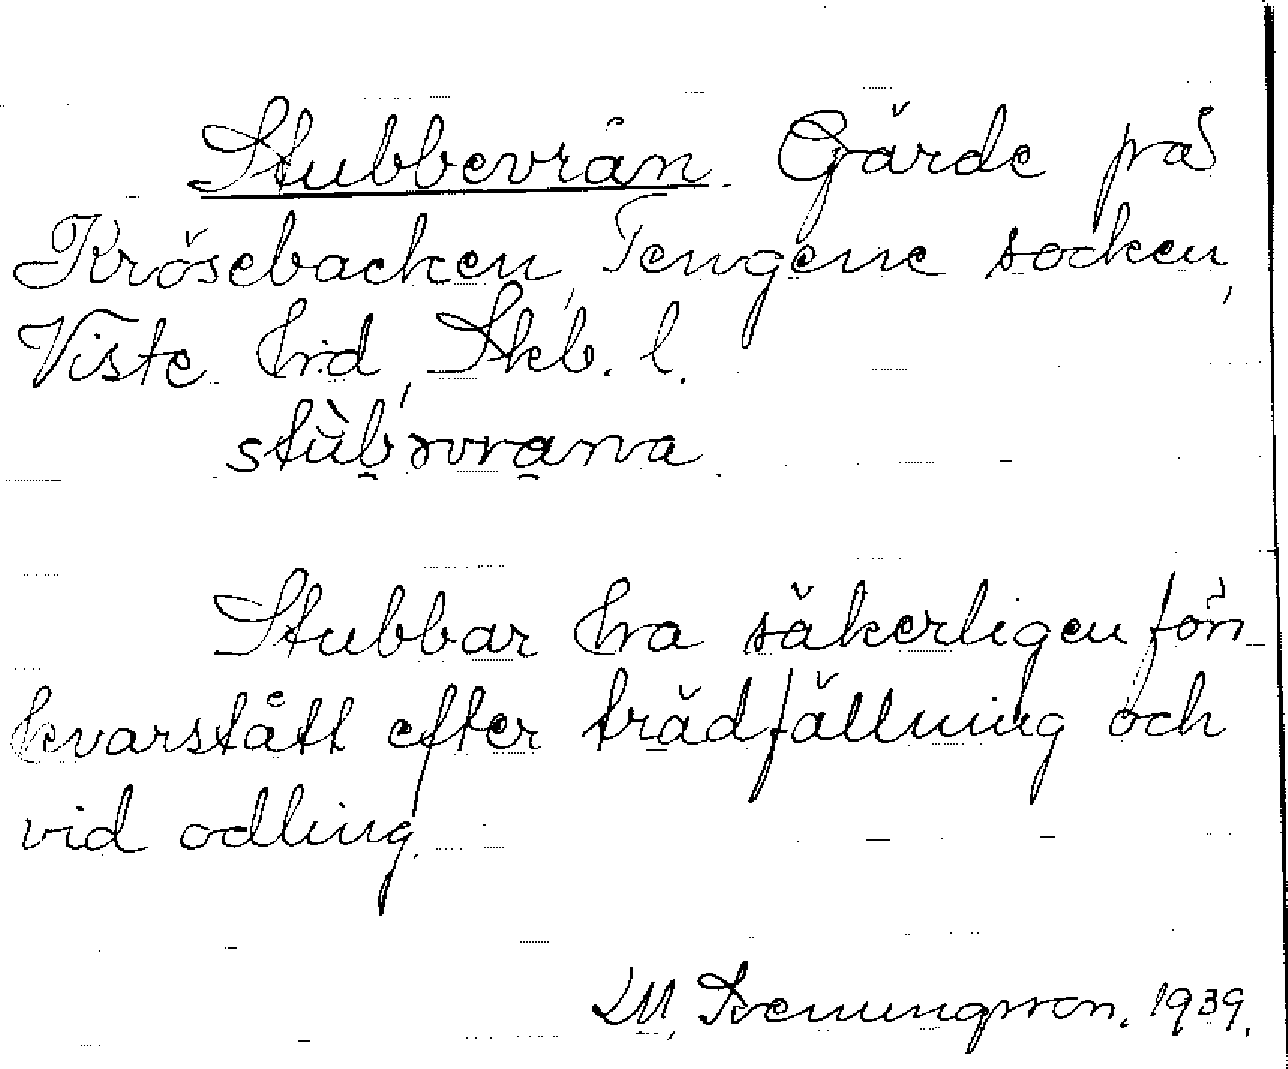 Stubbevrån. Gärde på
Krösebacken, Tengene socken,
Viste hrd, Skb. l.
stùb̯əvra̯na.
Stubbar ha säkerligen förr
kvarstått efter trädfällning och
vid odling.
1939.